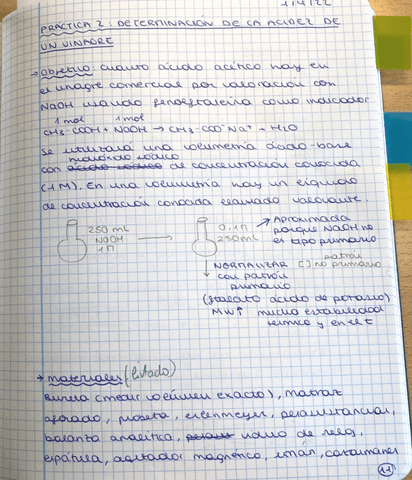 1/4/22
PRÁCTICA 2: DETERMINACIÓN DE LA ACIDEZ DE
UN VINAGRE
→ Objetivo: cuanto ácido acético hay en
el vinagre comercial por valoración con
NaOH usando fenolftaleína como indicador
1mol 1mol
CH3-COOH + NaOH → CH3-COO⁻Na⁺ + H2O
Se utilizará una volumetría ácido-base
hidróxido sódico
con ácido sódico de concentración conocida
(1M). En una volumetría hay un líquido
de concentración conocida llamado valorante.
250 mL
NaOH
1M
→
0,1M
250mL
→ Aproximada
porque NaOH no
es tipo primario
patrón
[ ] no primario
↓ NORMALIZAR
con patrón
primario
(ftalato ácido de potasio)
MW↑ mucha estabilidad
térmica y en el t
→ materiales (listado)
Bureta (medir volumen exacto), matraz
aforado, probeta, erlenmeyer, pesasustancias,
balanza analítica, vidrio de reloj,
espátula, agitador magnético, imán,
11